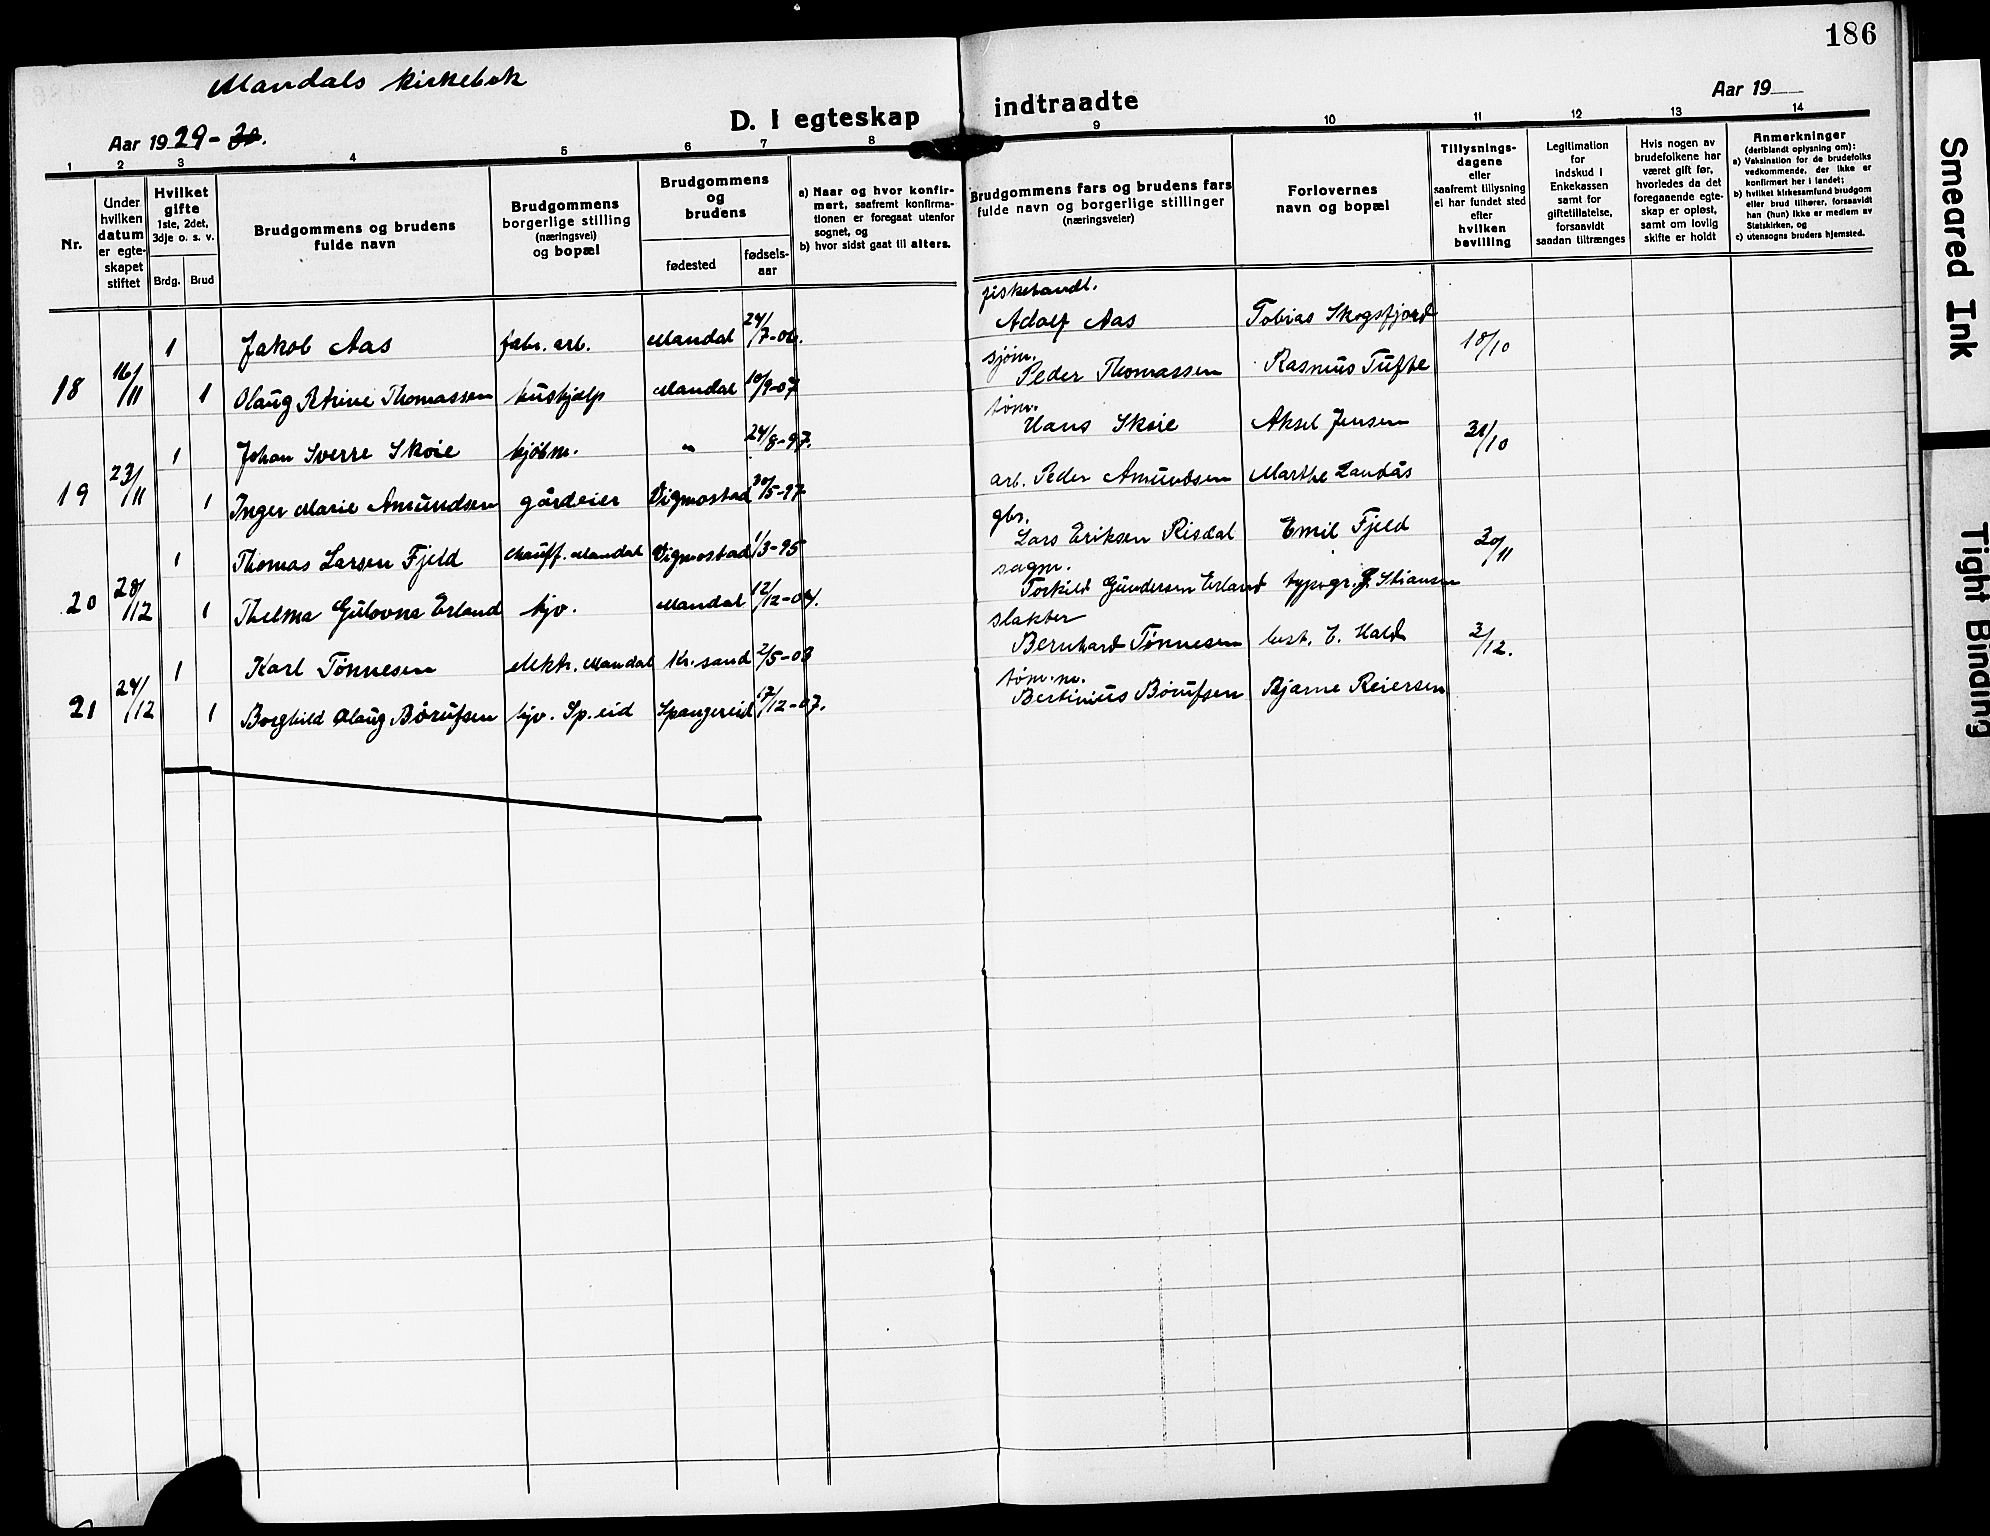 186
Mandals kirkebok
D. I egteskap indtraadte
Aar 1929-30.
Aar 19
1 2 3 4 5 6 7 8 9 10 11 12 13 14
Nr.
Under hvilken datum er egteskapet stiftet
Hvilket gifte 1ste, 2det, 3dje o. s. v.
Brdg. Brud
Brudgommens og brudens fulde navn
Brudgommens borgerlige stilling (næringsvei) og bopæl
Brudgommens og brudens
fødested
fødselsaar
a) Naar og hvor konfirmert, saafremt konfirmationen er foregaat utenfor sognet, og
b) hvor sidst gaat til alters.
Brudgommens fars og brudens fars fulde navn og borgerlige stillinger (næringsveier)
Forlovernes navn og bopæl
Tillysningsdagene eller saafremt tillysning ei har fundet sted efter hvilken bevilling
Legitimation for indskud i Enkekassen samt for giftetillatelse, forsaavidt saadan tiltrænges
Hvis nogen av brudefolkene har været gift før, hvorledes da det foregaaende egteskap er opløst, samt om lovlig skifte er holdt
Anmerkninger
(deriblandt oplysning om):
a) Vaksination for de brudefolks vedkommende, der ikke er konfirmert her i landet;
b) hvilket kirkesamfund brudgom eller brud tilhører, forsaavidt han (hun) ikke er medlem av Statskirken, og
c) utensogns bruders hjemsted.
1 Jakob Aas fabr. arb. Mandal 24/7-06. fiskehandl. Adolf Aas Tobias Skogsfjord 10/10
18 16/11 1 Olaug Petrine Thomassen hushjælp Mandal 10/9-07 sjøm. Peder Thomassen Rasmus Tufte
1 Johan Sverre Skøie kjøbm. " 24/8-97. tøm. Hans Skøie Aksel Jensen 31/10
19 23/11 1 Inger Marie Amundsen gårdeier Vigmostad 30/5-97 arb. Peder Amundsen Marthe Landås
1 Thomas Larsen Fjeld chauff. Mandal Vigmostad 1/3-95 gbr. Lars Eriksen Risdal Emil Fjeld 20/11
20 28/12 1 Thelma Gulovna Erland hjv. Mandal 12/12-04. sagm. Torkild Gundersen Erland typogr. J. Stiansen
1 Karl Tønnesen elektr. Mandal Kr.sand 2/5-03 slakter Bernhard Tønnesen best. E. Hald 3/12.
21 24/12 1 Borghild Olaug Børufsen hjv. Sp.eid Spangereid 17/12-07. tøm.m. Bertinius Børufsen Bjarne Reiersen
Smeared Ink
Tight Binding